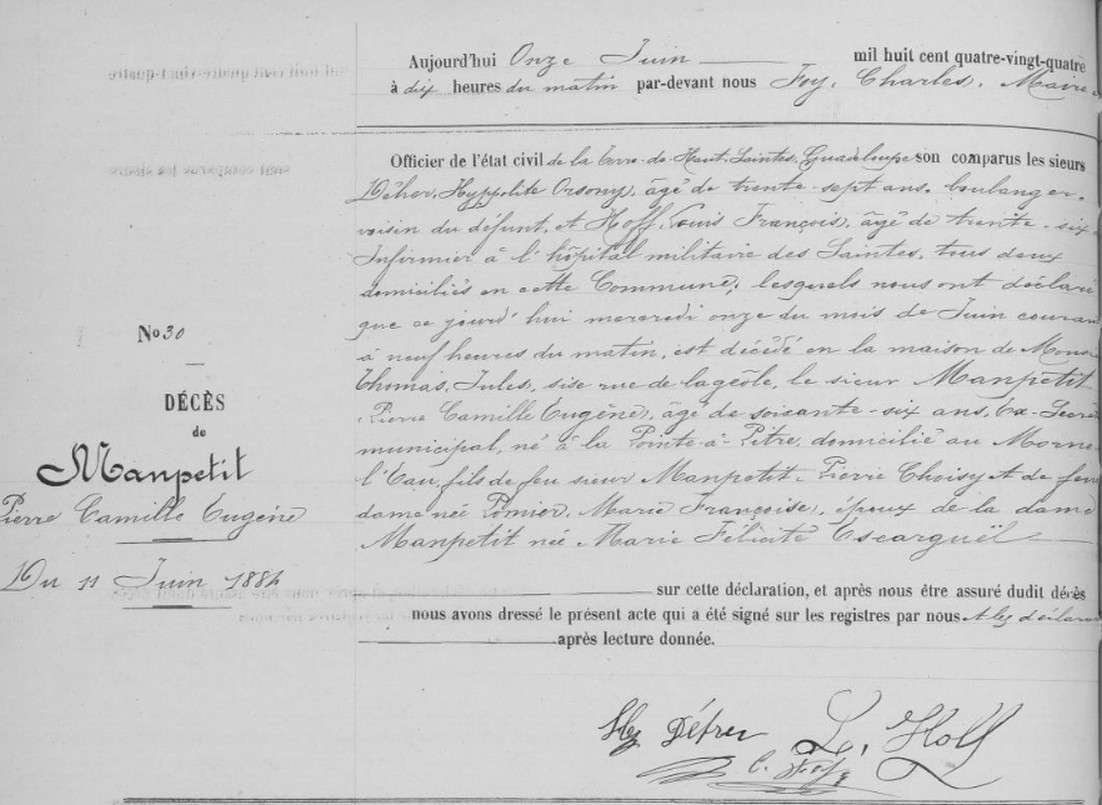 Aujourd'hui Onze Juin mil huit cent quatre-vingt-quatre
à dix heures du matin par-devant nous Foy, Charles, Maire
Officier de l'état civil de la Terre-de-Haut, Saintes, Guadeloupe son comparus les sieurs
Hyppolite Orsony, âgé de trente-sept ans, boulanger,
voisin du défunt, et Hoff, Louis François, âgé de trente-six
Infirmier à l'hôpital militaire des Saintes, tous deux
domiciliés en cette Commune; lesquels nous ont déclaré
que ce jourd'hui mercredi onze du mois de Juin couran
à neuf heures du matin, est décédé en la maison de
Thomas, Jules, sise rue de lageôle, le sieur Manpetit
Pierre Camille Eugène, âgé de soixante-six ans, Ex-Secré
municipal, né à la Pointe-à-Pitre, domicilié au Morne
l'Eau, fils de feu sieur Manpetit, Pierre Choisy et de feue
dame née Marie Françoise, époux de la dame
Manpetit née Marie Félicité Escarguël
No 30
DÉCÈS
de
Manpetit
Pierre Camille Eugène
Du 11 Juin 1884
sur cette déclaration, et après nous être assuré dudit décès
nous avons dressé le présent acte qui a été signé sur les registres par nous et les déclaran
après lecture donnée.
L. Hoff
C. Foy